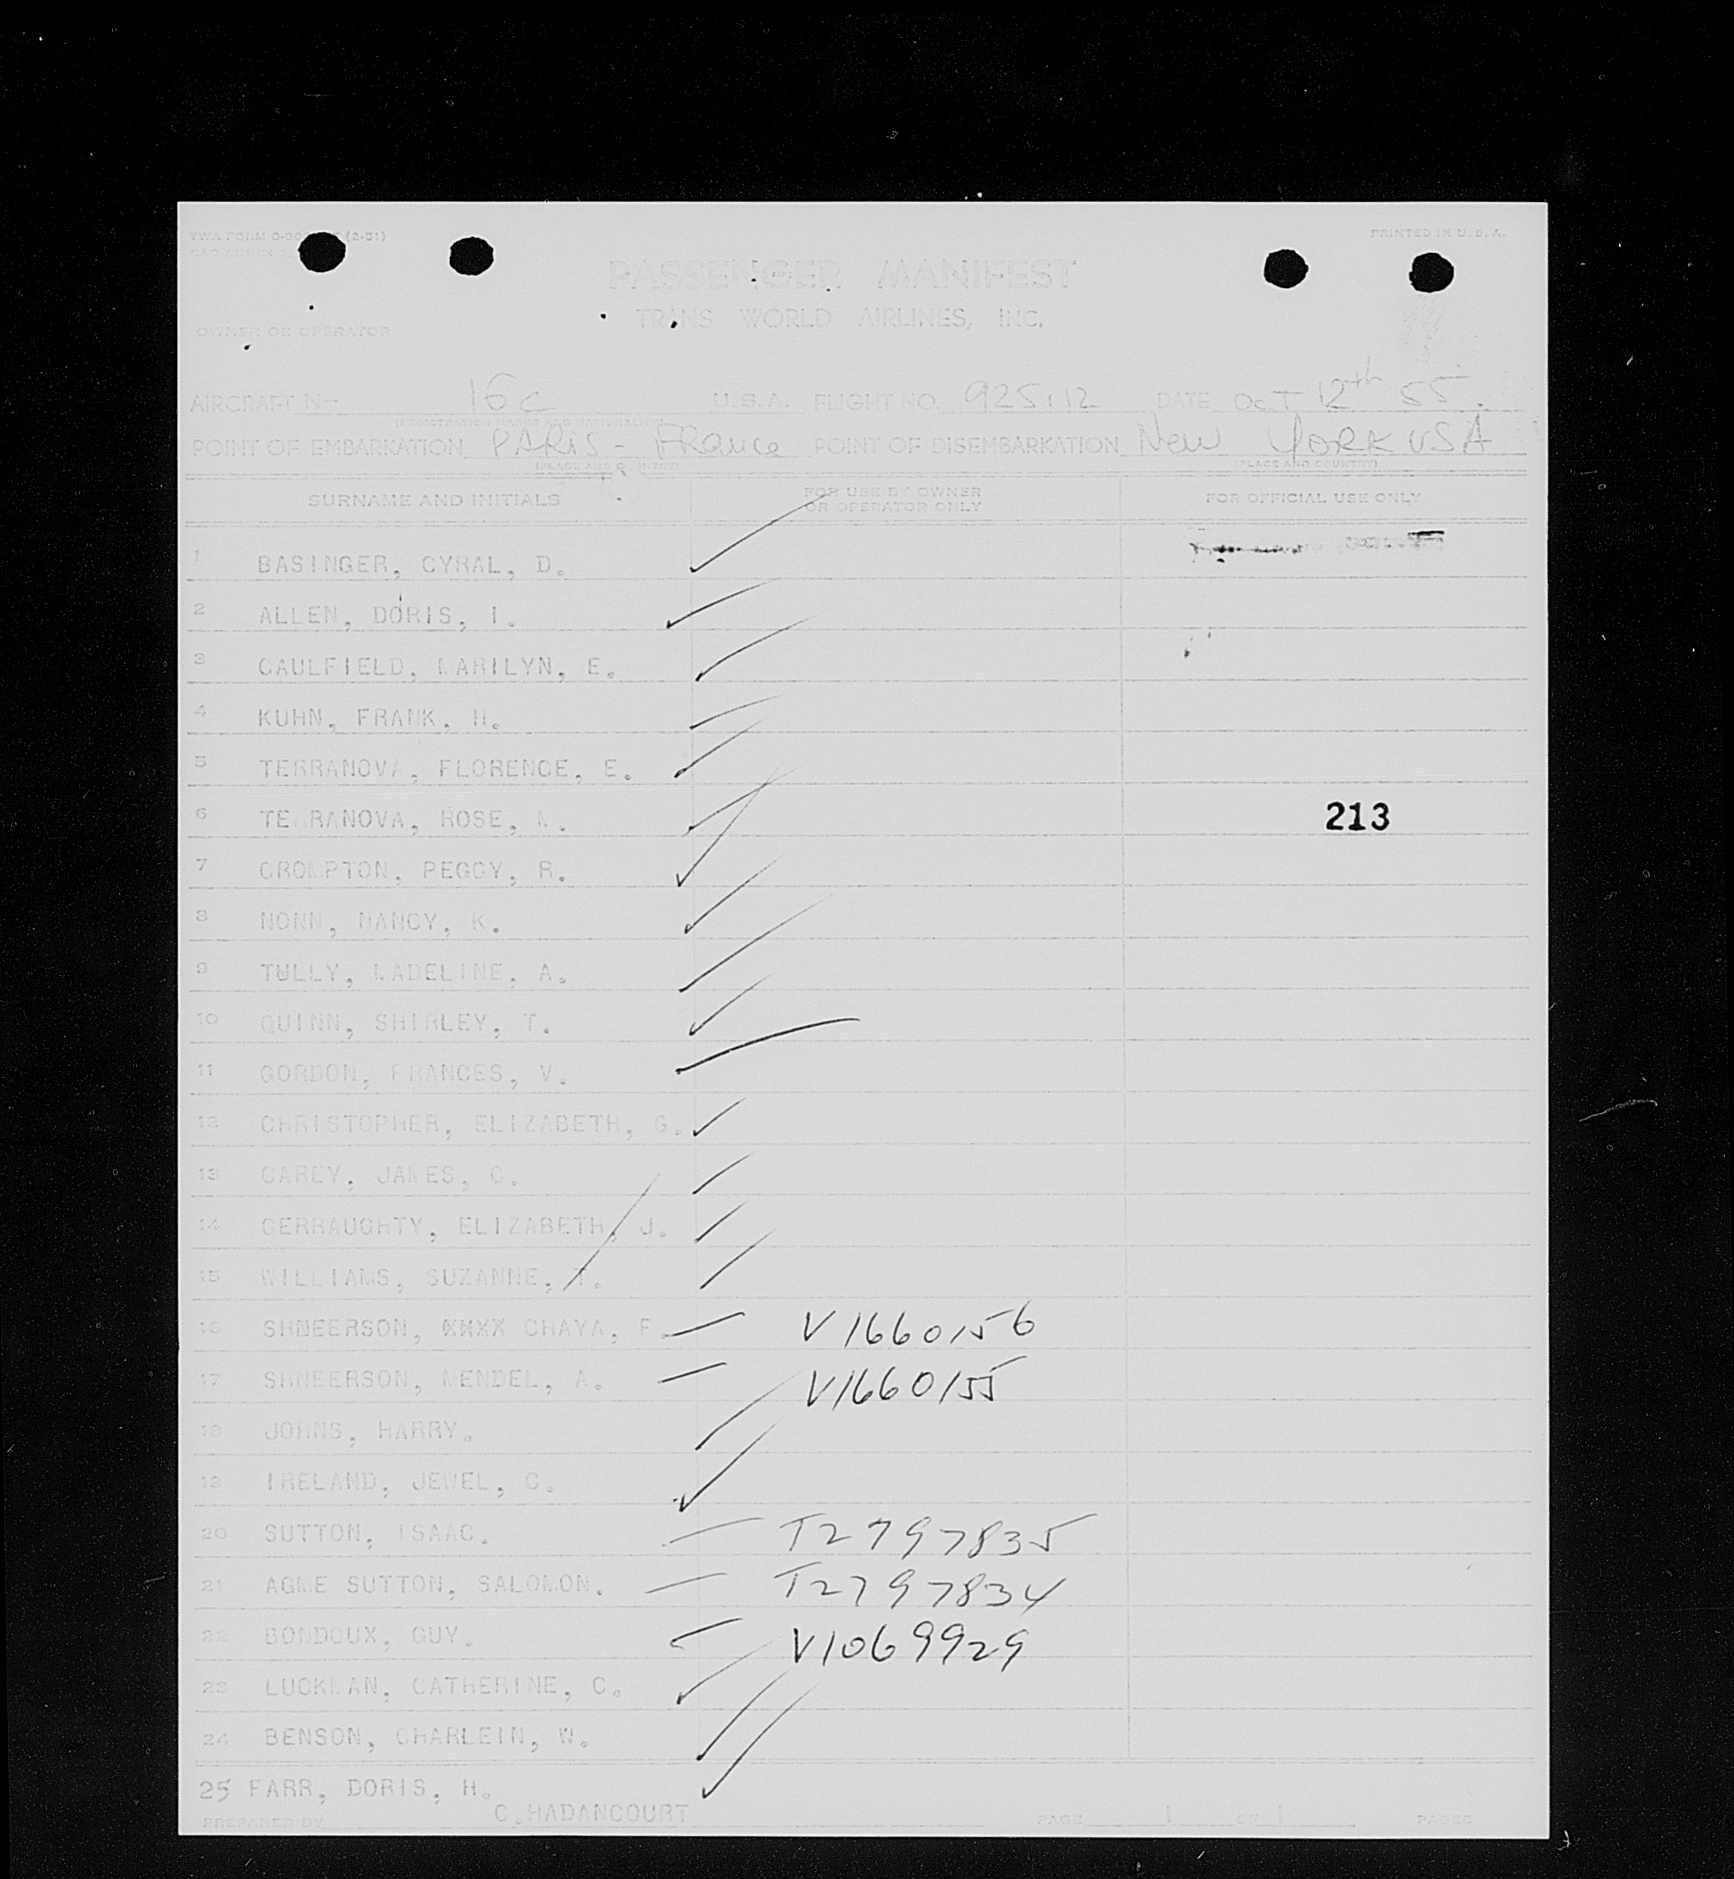 TWA FORM
PRINTED IN U.S.A.
PASSENGER MANIFEST
TRANS WORLD AIRLINES, INC.
OWNER OR OPERATOR
AIRCRAFT No. 16c U.S.A. FLIGHT NO. 925/12 DATE OCT 12th 55.
(REGISTRATION MARKS AND NATIONALITY)
POINT OF EMBARKATION PARIS - FRance POINT OF DISEMBARKATION New YORK USA
(PLACE AND COUNTRY) (PLACE AND COUNTRY)
SURNAME AND INITIALS FOR USE BY OWNER OR OPERATOR ONLY FOR OFFICIAL USE ONLY
1 BASINGER, CYRAL, D.
2 ALLEN, DORIS, I.
3 CAULFIELD, MARILYN, E.
4 KUHN, FRANK, H.
5 TERRANOVA, FLORENCE, E.
6 TERRANOVA, ROSE, M. 213
7 CROMPTON, PEGGY, R.
8 NONN, NANCY, K.
9 TULLY, MADELINE, A.
10 QUINN, SHIRLEY, T.
11 GORDON, FRANCES, V.
12 CHRISTOPHER, ELIZABETH, G.
13 CAREY, JAMES, C.
14 GERRAUGHTY, ELIZABETH, J.
15 WILLIAMS, SUZANNE, T.
16 SHNEERSON, XXXX CHAYA, F. V1660156
17 SHNEERSON, MENDEL, A. V1660155
18 JOHNS, HARRY.
19 IRELAND, JEWEL, C.
20 SUTTON, ISAAC. T2797835
21 AGME SUTTON, SALOMON. T2797834
22 BONDOUX, GUY. V1069929
23 LUCKMAN, CATHERINE, C.
24 BENSON, CHARLEIN, W.
25 FARR, DORIS, H.
PREPARED BY C.HADANCOURT PAGE 1 OF 1 PAGES